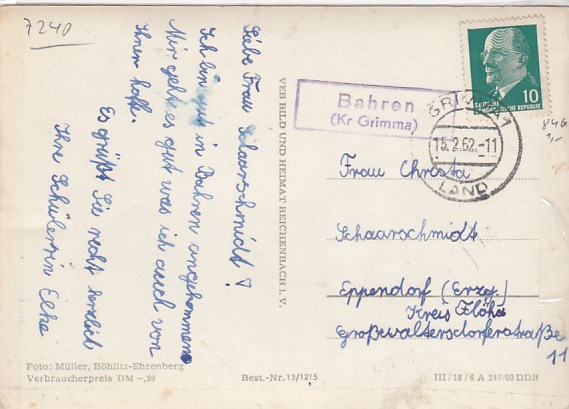 7240
Liebe Frau Schaarschmidt!
Ich bin gut in Bahren angekommen
Mir geht es gut was ich auch von
Ihnen hoffe.
Es grüßt Sie recht herzlich
Ihre Schülerin Elke
VEB BILD UND HEIMAT REICHENBACH i. V.
Bahren
(Kr Grimma)
10
DEUTSCHE
DEMOKRATISCHE REPUBLIK
GRIMMA 1
15.2.62.-11
LAND
Frau Christa
Schaarschmidt
Eppendorf (Erzg.)
Kreis Flöha
Großwaltersdorferstraße
11
Foto: Müller, Böhlitz-Ehrenberg
Verbraucherpreis DM -,20
Best.-Nr. 13/1215
III/18/6 A 246/60 DDR